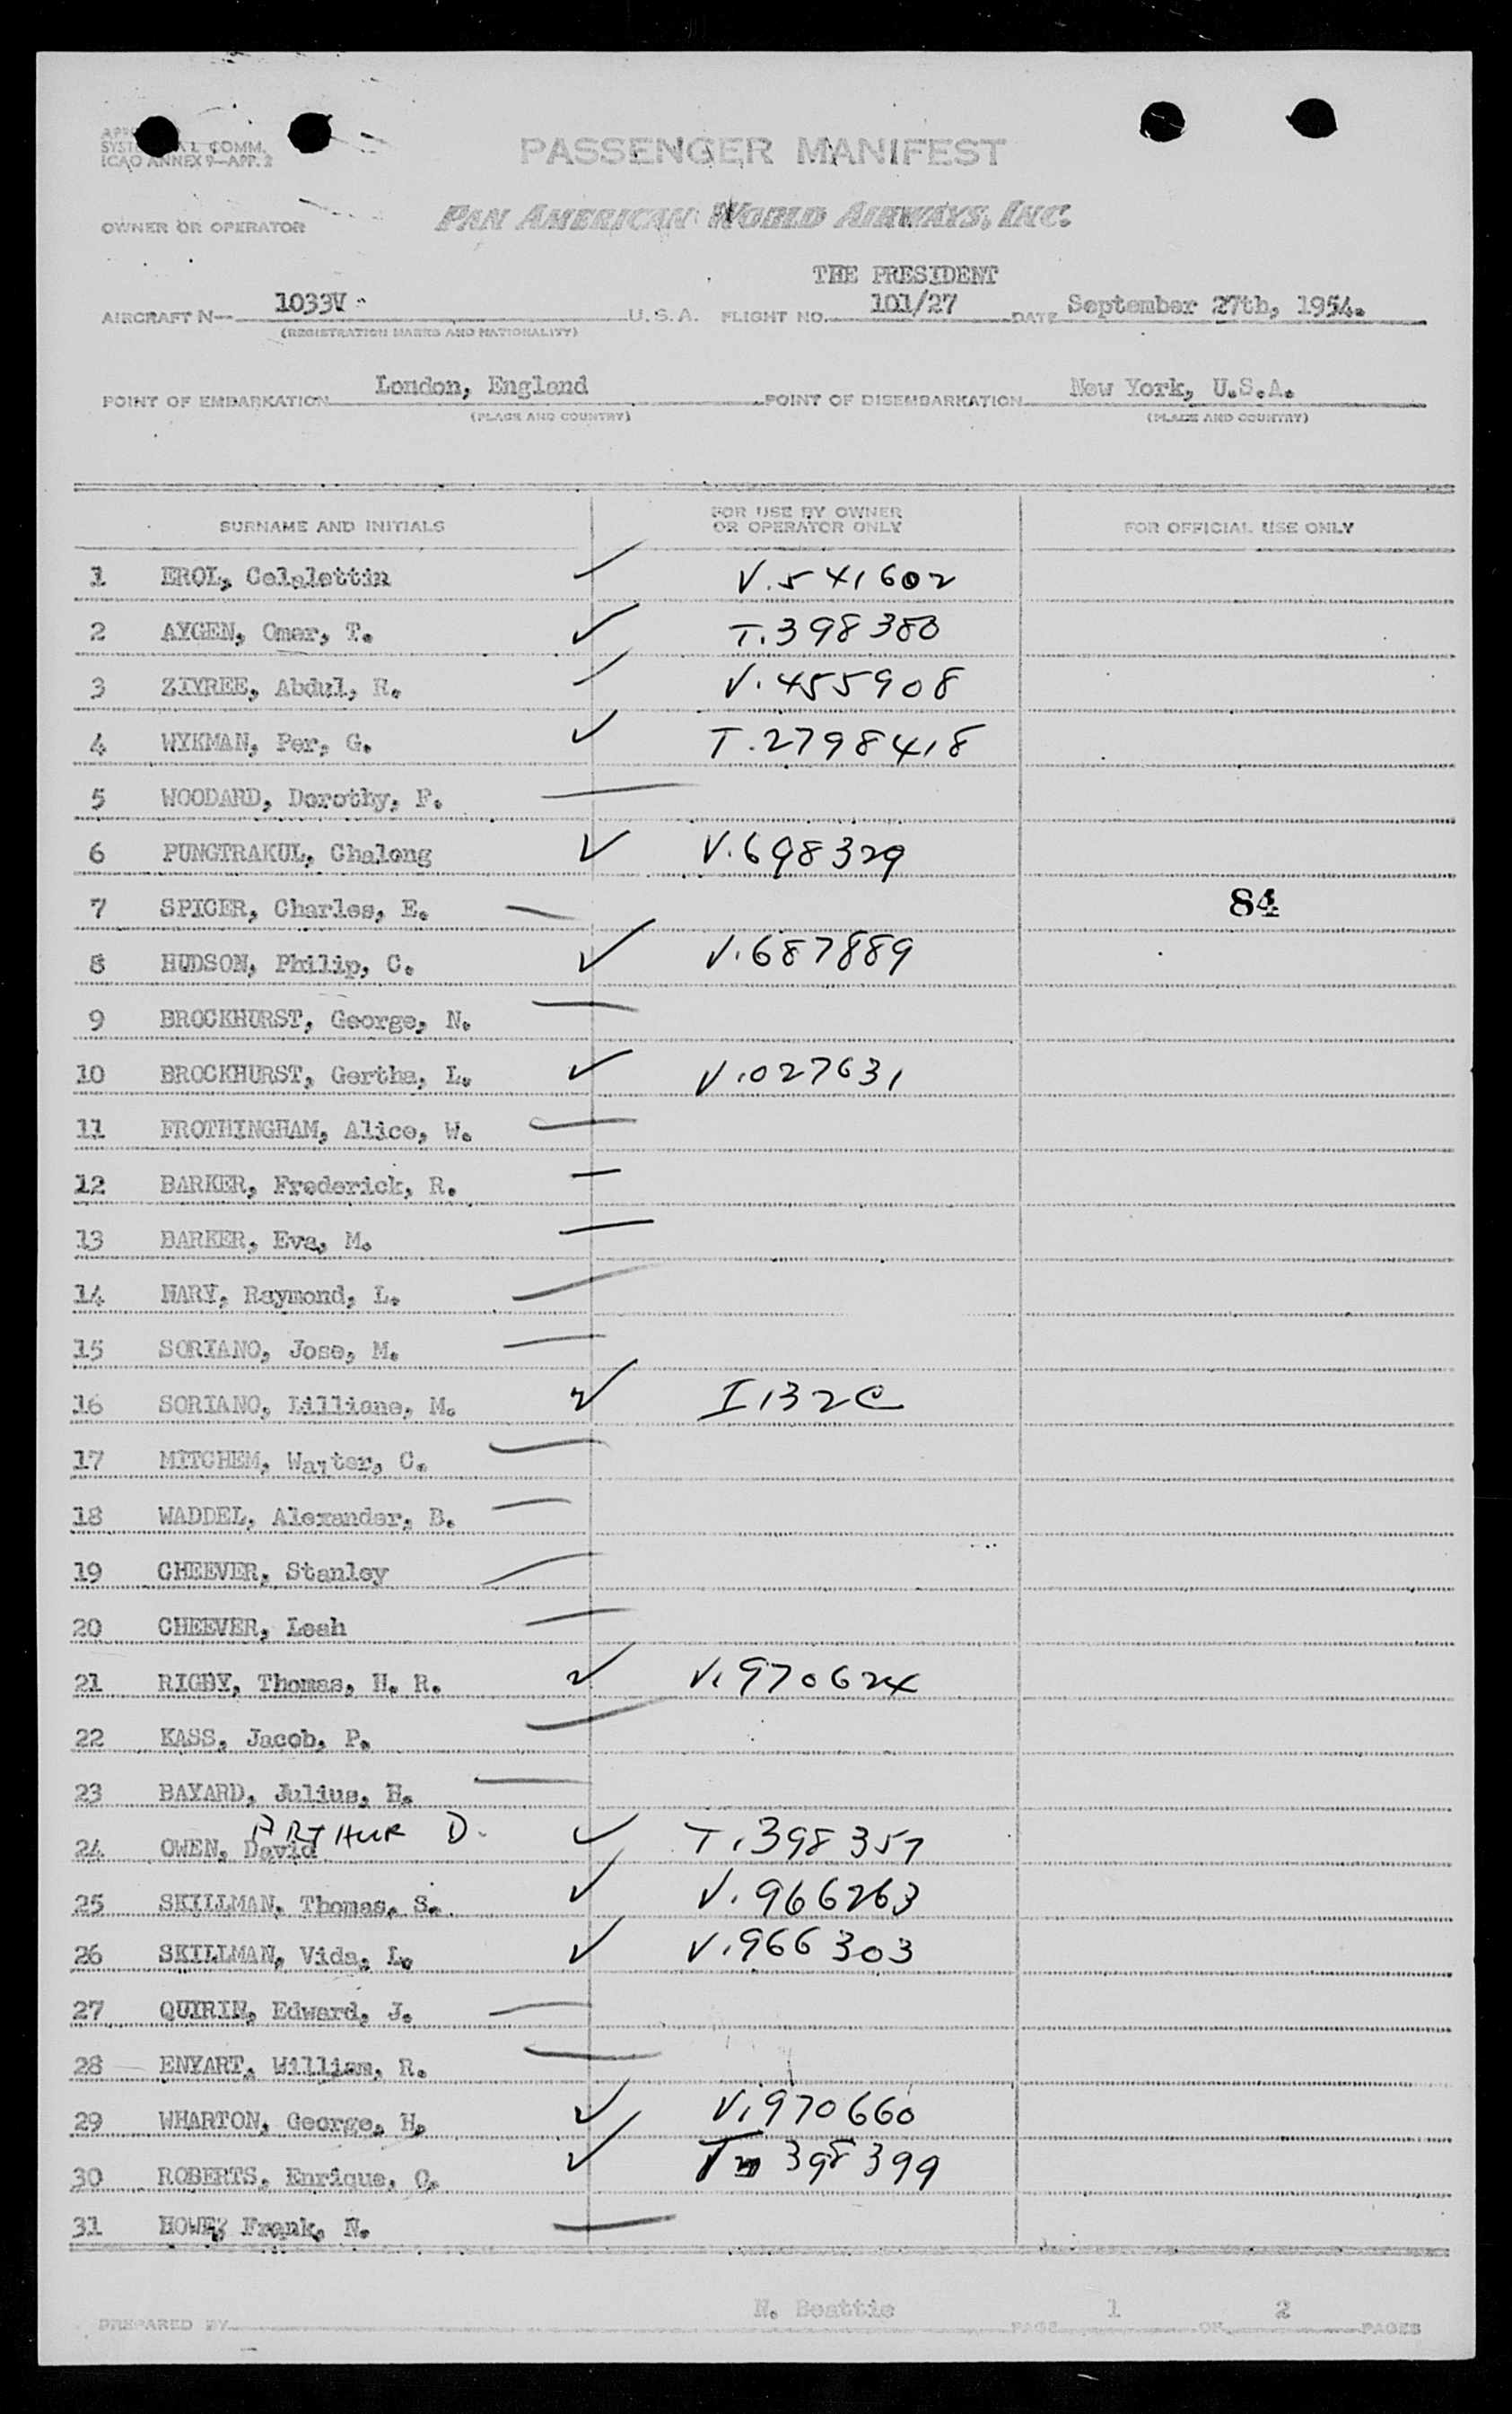 SYST
COMM.
ICAO ANNEX 9—APP. 2
PASSENGER MANIFEST
OWNER OR OPERATOR
PAN AMERICAN WORLD AIRWAYS, INC.
THE PRESIDENT
AIRCRAFT N— 1033V U. S. A. FLIGHT NO. 101/27 DATE September 27th, 1954.
(REGISTRATION MARKS AND NATIONALITY)
POINT OF EMBARKATION London, England POINT OF DISEMBARKATION New York, U.S.A.
(PLACE AND COUNTRY) (PLACE AND COUNTRY)
SURNAME AND INITIALS FOR USE BY OWNER OR OPERATOR ONLY FOR OFFICIAL USE ONLY
1 EROL, Celalettin V.541602
2 AYGEN, Omer, T. T.398380
3 ZIYREE, Abdul, R. V.455908
4 WYKMAN, Per, G. T.2798418
5 WOODARD, Dorothy, P.
6 PUNGTRAKUL, Chalong V.698329
7 SPICER, Charles, E. 84
8 HUDSON, Philip, C. V.687889
9 BROCKHURST, George, N.
10 BROCKHURST, Gertha, L. V.027631
11 FROTHINGHAM, Alice, W.
12 BARKER, Frederick, R.
13 BARKER, Eva, M.
14 NARY, Raymond, L.
15 SORIANO, Jose, M.
16 SORIANO, Lilliane, M. I 132C
17 MITCHEM, Wa1ter, C.
18 WADDEL, Alexander, B.
19 CHEEVER, Stanley
20 CHEEVER, Leah
21 RIGBY, Thomas, H. R. V.970624
22 KASS, Jacob, P.
23 BAYARD, Julius, H.
ARTHUR D.
24 OWEN, David T.398357
25 SKILLMAN, Thomas, S. V.966263
26 SKILLMAN, Vida, L. V.966303
27 QUIRIN, Edward, J.
28 ENYART, William, R.
29 WHARTON, George, H. V.970660
30 ROBERTS, Enrique, C. T 398399
31 HOWE, Frank, N.
PREPARED BY N. Beattie PAGE 1 OF 2 PAGES